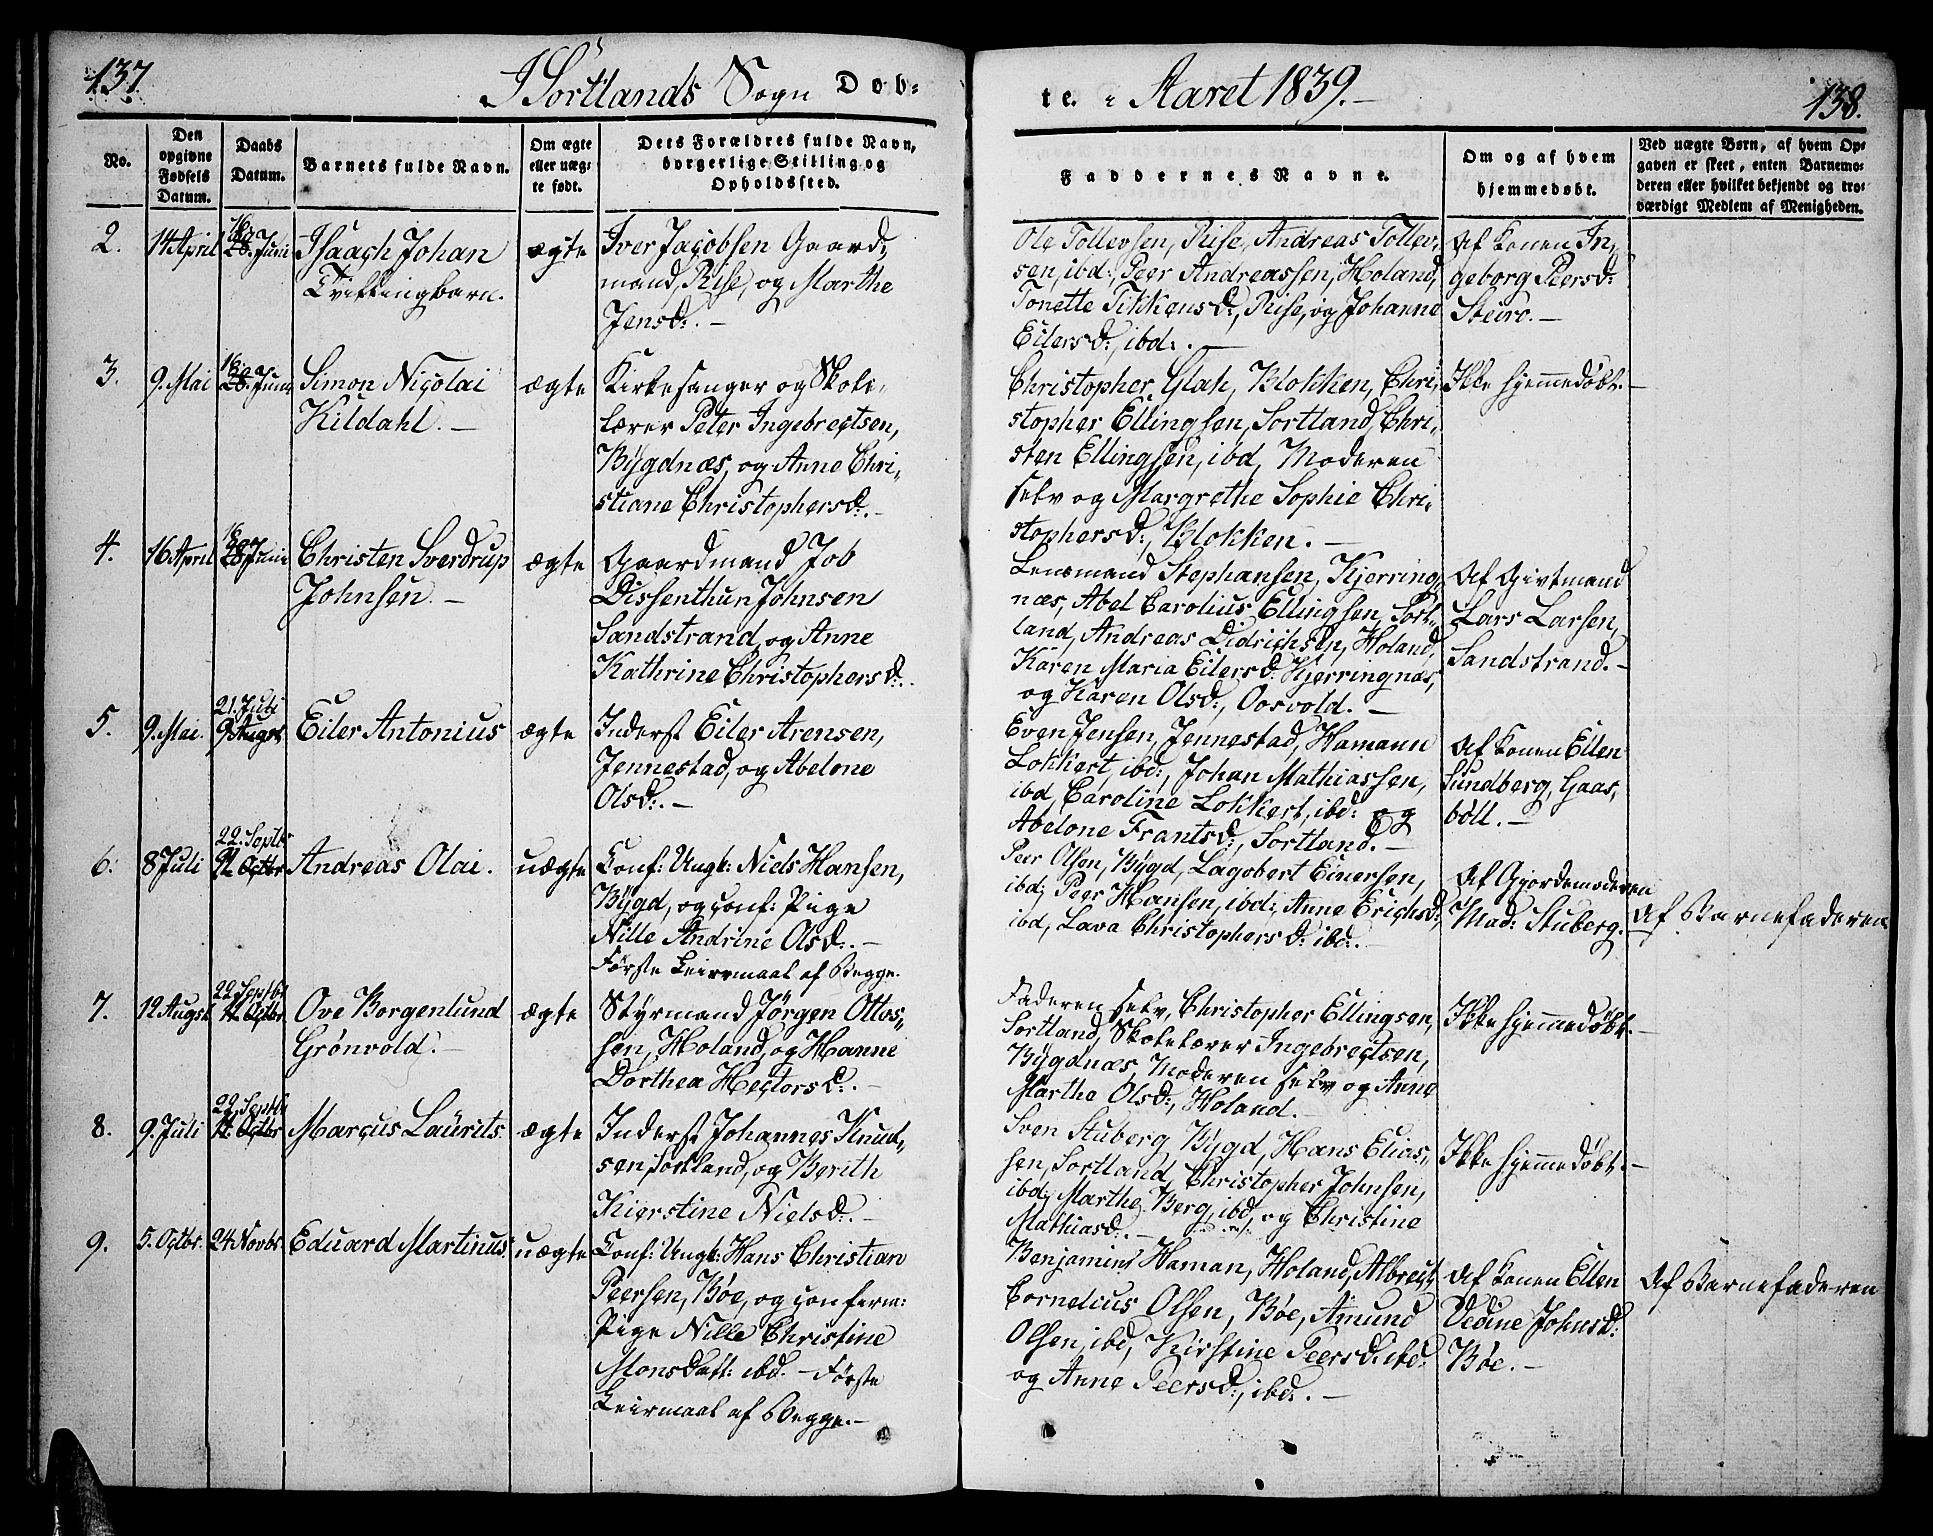 137
I Sortlands Sogn Døb-
te. i Aaret 1839.
138.
No.
Den
opgivne
Fødsels
Datum.
Daabs
Datum.
Barnets fulde Navn.
Om ægte
eller uæg-
te født.
Dets Forældres fulde Navn,
borgerlige Stilling og
Opholdssted.
Faddernes Navne.
Om og af hvem
hjemmedøbt.
Ved uægte Børn, af hvem Op-
gaven er skeet, enten Barnemo-
deren eller hvilket bekjendt og tro-
værdigt Medlem af Menigheden.
2.
14 April
16
28. Juni
Isaach Johan
Tvillingbarn.
ægte
Iver Jacobsen Gaard-
mand, Rise, og Marthe
Jensd:. —
Ole Tollevsen, Rise, Andreas Tollev-
sen, ibd:, Peer Andreassen, Holand,
Tonette Tikkensd:, Rise, og Johanne
Eilersd:, ibd:. —
Af Konen In-
geborg Peersd:
Steiro. —
3.
9. Mai
16
28. Juni
Simon Nicolai
Kildahl. —
ægte
Kirkesanger og Skole-
lærer Peter Ingebregtsen,
Bÿgdnæs, og Anne Chri-
stiane Christophersd:. —
Christopher Glah, Blokken, Chri-
stopher Ellingsen, Sortland, Chri-
sten Ellingsen, ibd, Moderen
selv og Margrethe Sophie Chri-
stophersd:, Blokken. —
Ikke hjemmedøbt. —
4.
16 April
16
28 Juni
Christen Sverdrup
Johnsen. —
ægte
Gaardmand Job
Dissenthun Johnsen
Sandstrand, og Anne
Kathrine Christophersd:.
Lensmand Stephansen, Kjerring-
næs, Abel Carolius Ellingsen, Sort-
land, Andreas Didrichsen, Holand,
Karen Maria Eilersd: Kjerringnæs,
og Karen Olsd:, Oosvold. —
Af Givtmand
Lars Larsen,
Sandstrand. —
5.
9. Mai.
21. Juli
9 Augst
Eiler Antonius
ægte
Inderst Eiler Arensen,
Jennestad, og Abelone
Olsd:. —
Even Jensen, Jennestad, Hamann
Lokkert, ibd:, Johan Mathiassen,
ibd, Caroline Lokkert, ibd: og
Abelone Frantsd:, Sortland. —
Af Konen Ellen
Sundberg, Gaas-
böll. —
6.
8 Juli
22. Septbr
Octbr
Andreas Olai.
uægte
Conf: Ungk: Niels Hansen,
Bÿgd, og conf: Pige
Nille Andrine Olsd:. —
Første Leiermaal af Begge.
Peer Olsen, Bÿgd, Lagobert Einersen,
ibd; Peer Hansen, ibd:, Anne Erichsd:,
ibd, Lava Christophersd: ibd:. —
Af Gjordemoderen
Mad: Stuberg.
Af Barnefaderen
7.
12 Augst
22. Septbr
Octbr
Ove Borgenlund
Grönvold. —
ægte
Stÿrmand Jörgen Ottos-
sen, Holand, og Hanne
Dorthea Hectorsd:. —
Faderen selv, Christopher Ellingsen,
Sortland, Skolelærer Ingebregtsen,
Bÿgdnæs, Moderen selv og Anne
Martha Olsd:, Holand. —
Ikke hjemmedøbt. —
8.
9. Juli
22. Septbr
Octbr
Marcus Laürits.
ægte
Inderst Johannes Knud-
sen, Sortland, og Berith
Kierstine Nielsd:. —
Sven Stuberg, Bÿgd, Hans Elias-
sen, Sortland, Christopher Johnsen,
ibd; Marthe Berg, ibd, og Christine
Mathiasd:. —
Ikke hjemmedøbt. —
9.
5. Octbr.
24 Novbr.
Eduard Martinus
uægte
Conf: Ungk: Hans Christian
Peersen, Bøe, og conferm:
Pige Nille Christine
Monsdatt: ibd. — Første
Leiermaal af Begge. —
Benjamin Haman, Holand, Albregt
Cornelius Olsen, Bøe, Amund
Olsen, ibd, Kirstine Peersd: ibd:
og Anne Peersd:, ibd:. —
Af Konen Ellen
Vedine Johnsd:
Bøe. —
Af Barnefaderen